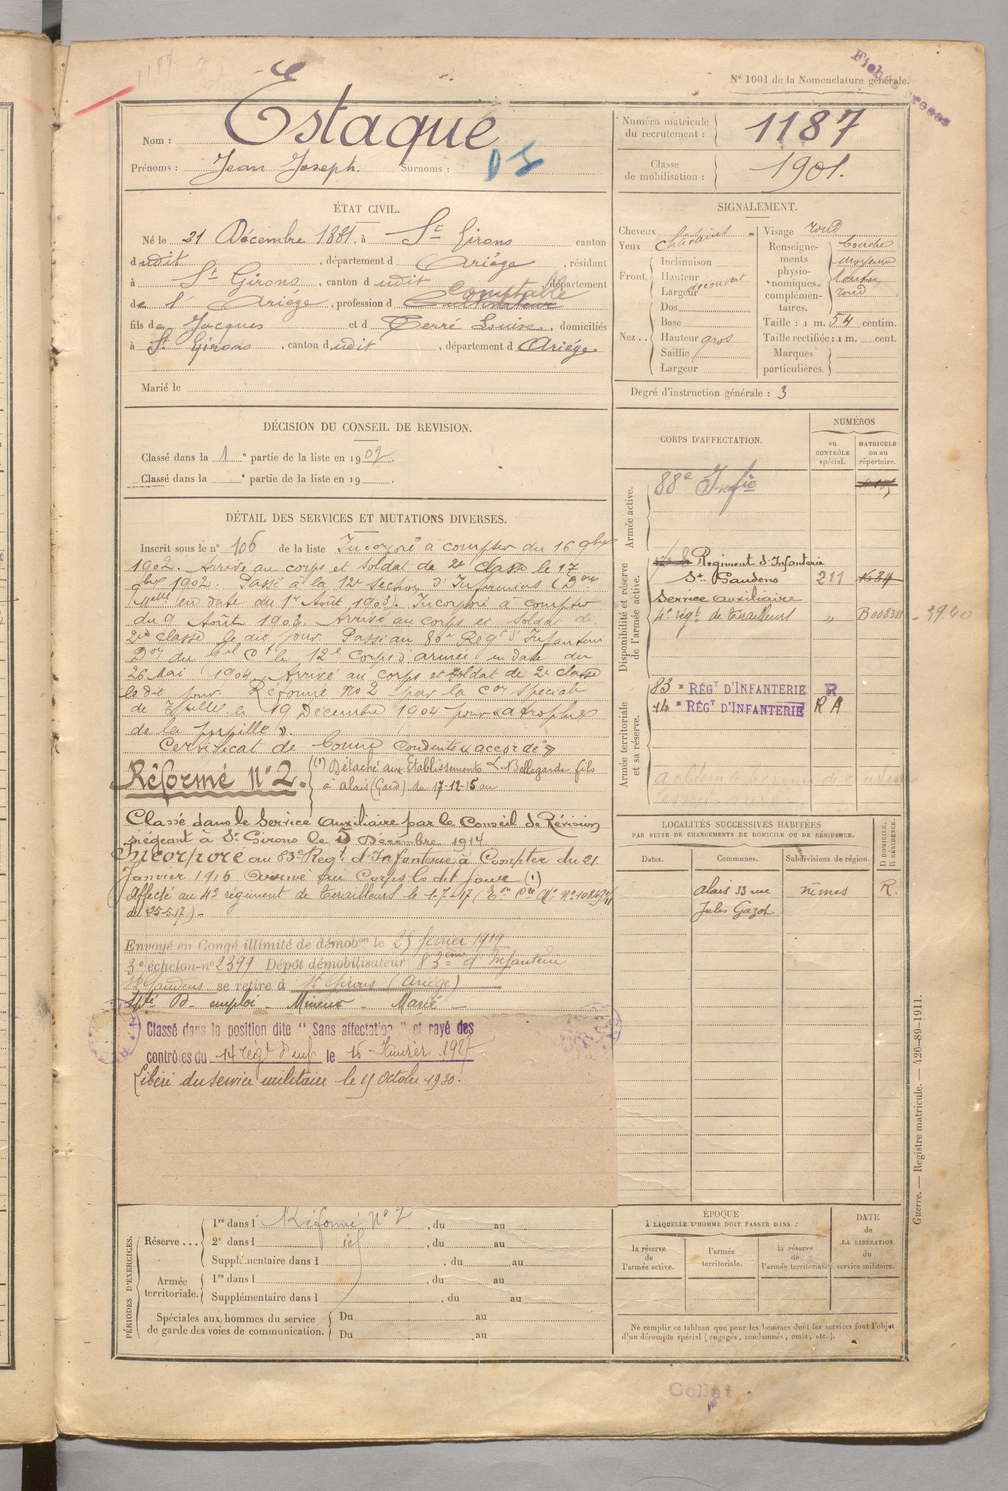 N° 1001 de la Nomenclature générale.
Nom : Estaque
Prénoms : Jean Joseph. Surnoms :
Numéro matricule du recrutement : 1187
Classe de mobilisation : 1901.
ÉTAT CIVIL.
Né le 21 Décembre 1881, à St Girons canton
dudit, département d Ariège, résidant
à St Girons, canton dudit département
de l'Ariège, profession d Comptable
fils de Jacques et d Terré Louise, domiciliés
à St Girons, canton dudit, département d Ariège
Marié le
SIGNALEMENT.
Cheveux chatains
Yeux
Front. Inclinaison
Hauteur
Largeur découvert
Nez.. Dos
Base
Hauteur gros
Saillie
Largeur
Visage rond
Renseignements physionomiques complémentaires. bouche moyenne menton rond
Taille : 1 m. 54 centim.
Taille rectifiée : 1 m. cent.
Marques particulières.
Degré d'instruction générale : 3
DÉCISION DU CONSEIL DE REVISION.
Classé dans la 1e partie de la liste en 1902.
Classé dans la e partie de la liste en 19 .
DÉTAIL DES SERVICES ET MUTATIONS DIVERSES.
Inscrit sous le n° 106 de la liste Incorporé à compter du 16 9bre
1902. Arrivé au corps et soldat de 2e classe le 17
9bre 1902. Passé à la 12e section d'Infirmiers (Don
Melle en date du 1er Août 1903). Incorporé à compter
du 9 Août 1903. Arrivé au corps et soldat de
2e classe le dit jour. Passé au 80e Regt d'Infanterie
Don du Gal Ct le 12e Corps d'armée en date du
26 Mai 1904. Arrivé au corps et soldat de 2e classe
le dit jour. Réformé No 2 par la Con spéciale
de Tulle le 19 Décembre 1904 pour
de la
Certificat de bonne conduite accordé
Réformé N° 2.
(1) Détaché aux Etablissements L. Bellegarde fils
à Alais (Gard) du 17-12-15 au
Classé dans le Service Auxiliaire par le Conseil de Révision
siégeant à St Girons le 5 Décembre 1914
Incorporé au 83e Regt d'Infanterie à Compter du 21
Janvier 1916 Arrivé au Corps le dit jour (1)
Affecté au 4e régiment de Tirailleurs le 1-7-17
du 25-5-17)
Envoyé en Congé illimité de démobon le 25 février 1919
3e échelon-n° 2399 Dépôt démobilisateur 83ème d'Infanterie
St Gaudens se retire à St Girons (Ariège)
emploi - Mineur - Marié
Classé dans la position dite "Sans affectation" et rayé des
contrôles du 14 régt d'inf le 15 Janvier 1927
Libéré du service militaire le 15 Octobre 1930.
CORPS D'AFFECTATION.
NUMÉROS
au CONTRÔLE spécial.
MATRICULE ou au répertoire.
Armée active.
88e Infie
Disponibilité et réserve de l'armée active.
Régiment d'Infanterie
St Gaudens 211 1634
Service auxiliaire
4e régt de tirailleurs " B008381 - 3940
Armée territoriale et sa réserve.
83e RÉGT D'INFANTERIE R
14e RÉGT D'INFANTERIE RA
LOCALITÉS SUCCESSIVES HABITÉES
PAR SUITE DE CHANGEMENTS DE DOMICILE OU DE RÉSIDENCE.
Dates. Communes. Subdivisions de région. D DOMICILE, R RÉSIDENCE.
Alais 33 rue Nîmes R.
Jules Cazot
PÉRIODES D'EXERCICES.
Réserve... 1re dans l Réformé N° 2, du au
2e dans l id, du au
Supplémentaire dans l , du au
Armée territoriale. 1re dans l , du au
Supplémentaire dans l , du au
Spéciales aux hommes du service de garde des voies de communication. Du au
Du au
ÉPOQUE
À LAQUELLE L'HOMME DOIT PASSER DANS :
la réserve de l'armée active.
l'armée territoriale.
la réserve de l'armée territoriale.
DATE DE LA LIBÉRATION du service militaire.
Ne remplir ce tableau que pour les hommes dont les services font l'objet
d'un décompte spécial (engagés, condamnés, omis, etc.).
Guerre. — Registre matricule. — 426-89-1911.